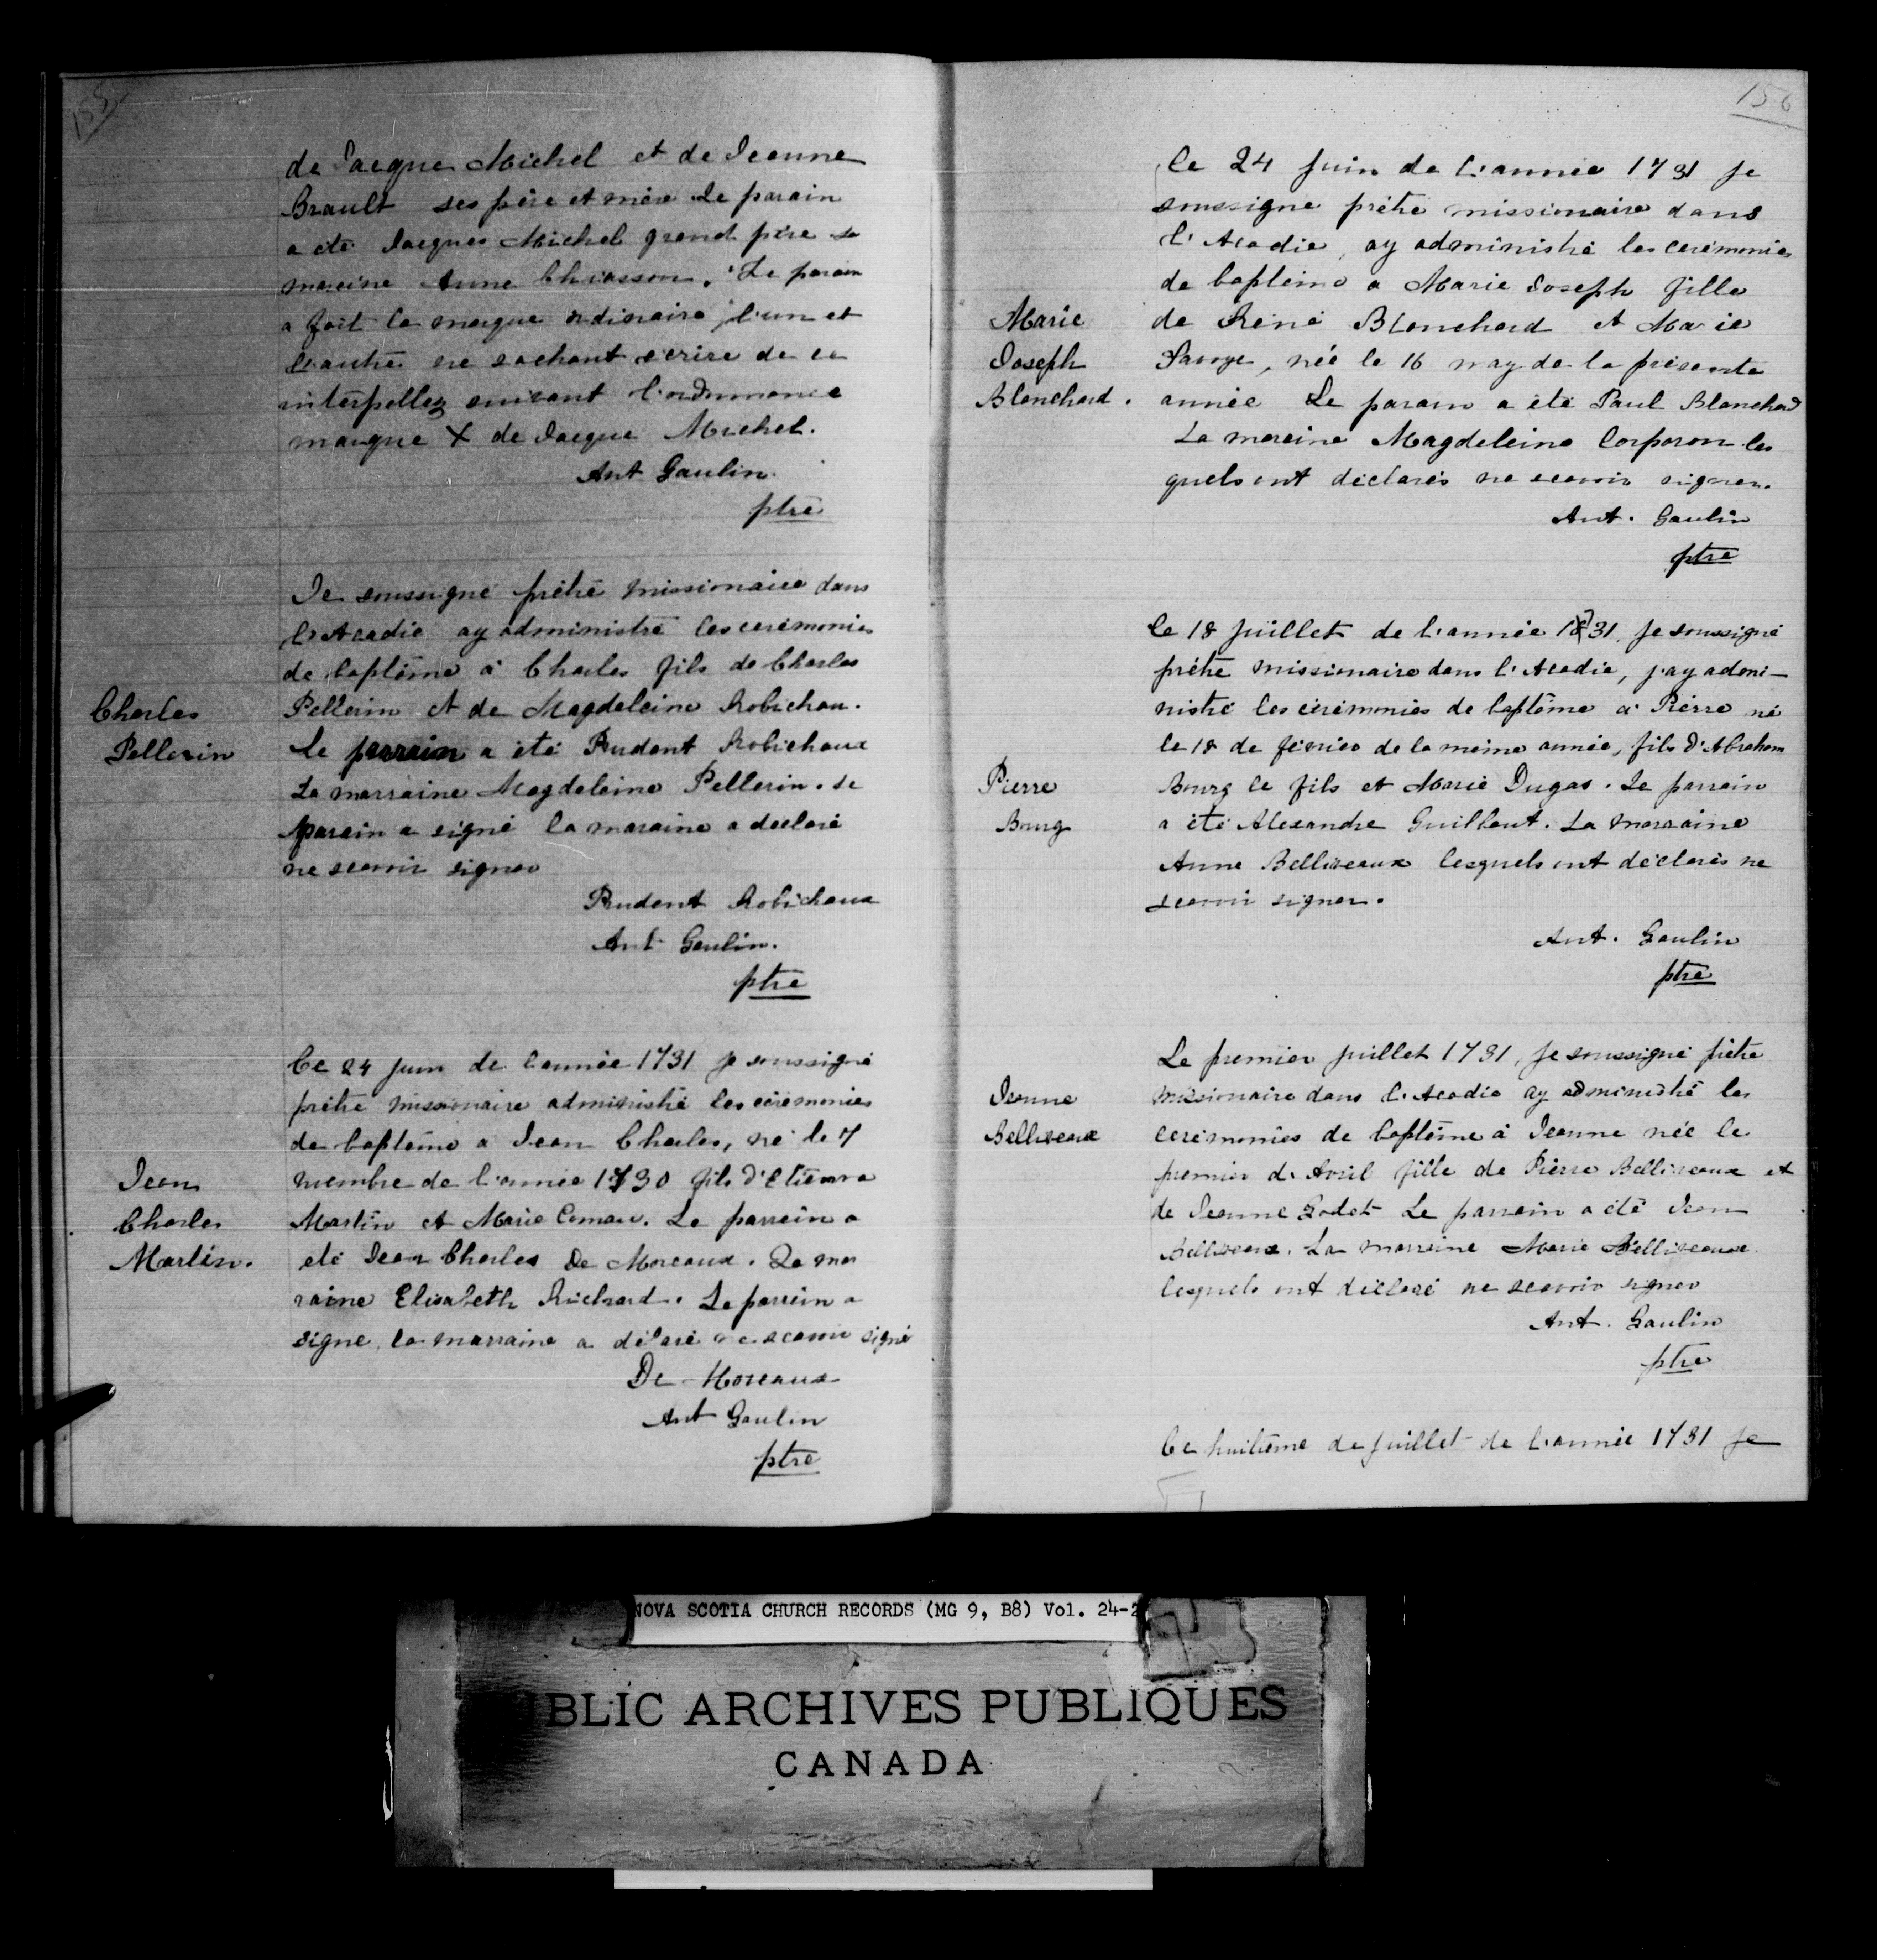 155
de Jacque Michel et de Jeanne
Brault ses père et mère Le parain
a été Jacques Michel grand père La
mareine Anne Chiasson. Le parain
a fait la marque ordinaire, l'un et
l'autre ne sachant écrire de ce
interpellez suivant l'ordonnance
marque X de Jacque Michel.
Ant Gaulin
ptre
Je soussigné prêtre missionaire dans
l'Acadie ay administré les ceremonies
de baptême à Charles fils de Charles
Charles
Pellerin
Pellerin et de Magdeleine Robichau.
Le parrain a été Prudent Robichaux
La marraine Magdeleine Pellerin. Le
parain a signé la maraine a declaré
ne scavoir signer
Prudent Robichaux
Ant Gaulin.
ptre
Ce 24 Juin de l'année 1731 je soussigné
prêtre missionaire administré les cérémonies
de baptême a Jean Charles, né le 7
Jean
Charles
Martin.
novembre de l'année 1730 fils d'Etienne
Martin et Marie Comau. Le parrain a
été Jean Charles De Moreaux. La mar
raine Elisabeth Richard. Le parrein a
signe, la marraine a déclaré ne scavoir signé
De Moreaux
Ant Gaulin
ptre
156
Ce 24 Juin de l'année 1731 je
soussigne prêtre missionaire dans
l'Acadie, ay administré les cerémonies
de baptême a Marie Joseph fille
Marie
Joseph
Blanchard.
de René Blanchard et Marie
Savoye, née le 16 may de la présente
année Le parain a été Paul Blanchard
La mareine Magdeleine Corporon les
quels ont déclarés ne scavoir signer.
Ant. Gaulin
ptre
Ce 18 Juillet de l'année 1731, je soussigné
prêtre missionaire dans l'Acadie, j'ay admi-
nistré les cérémonies de baptême à Pierre né
le 18 de février de la même année, fils d'Abraham
Pierre
Bourg
Bourg le fils et Marie Dugas. Le parrain
a été Alexandre Guilbaut. La marraine
Anne Belliveaux lesquels ont déclarés ne
scavoir signer.
Ant. Gaulin
ptre
Le premier juillet 1731, je soussigné prêtre
Jeanne
Belliveaux
missionaire dans l'Acadie ay administré les
cerémonies de baptême à Jeanne née le
premier d'Avril fille de Pierre Belliveaux et
de Jeanne Godet Le parrain a été Jean
Belliveaux. La marraine Marie Belliveaux
lesquels ont déclaré ne scavoir signer
Ant. Gaulin
ptre
Ce huitième de juillet de l'année 1731 je
NOVA SCOTIA CHURCH RECORDS (MG 9, B8) Vol. 24-2
BLIC ARCHIVES PUBLIQUES
CANADA